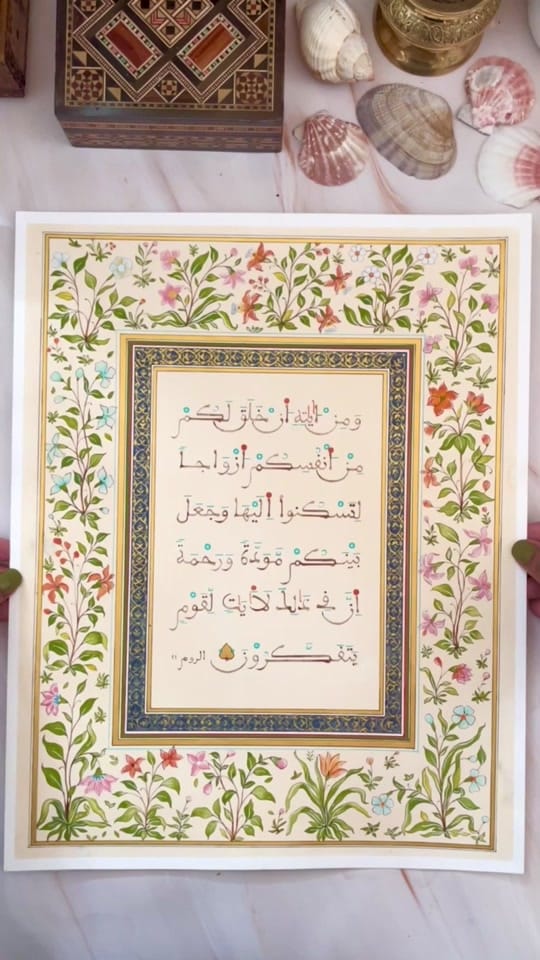 وَمِنْ ءَايَٰتِهِ أَنْ خَلَقَ لَكُم
مِّنْ أَنفُسِكُمْ أَزْوَاجًا
لِّتَسْكُنُوا إِلَيْهَا وَجَعَلَ
بَيْنَكُم مَّوَدَّةً وَرَحْمَةً
إِنَّ فِي ذَٰلِكَ لَأَيَٰتٍ لِّقَوْمٍ
يَتَفَكَّرُونَ الروم